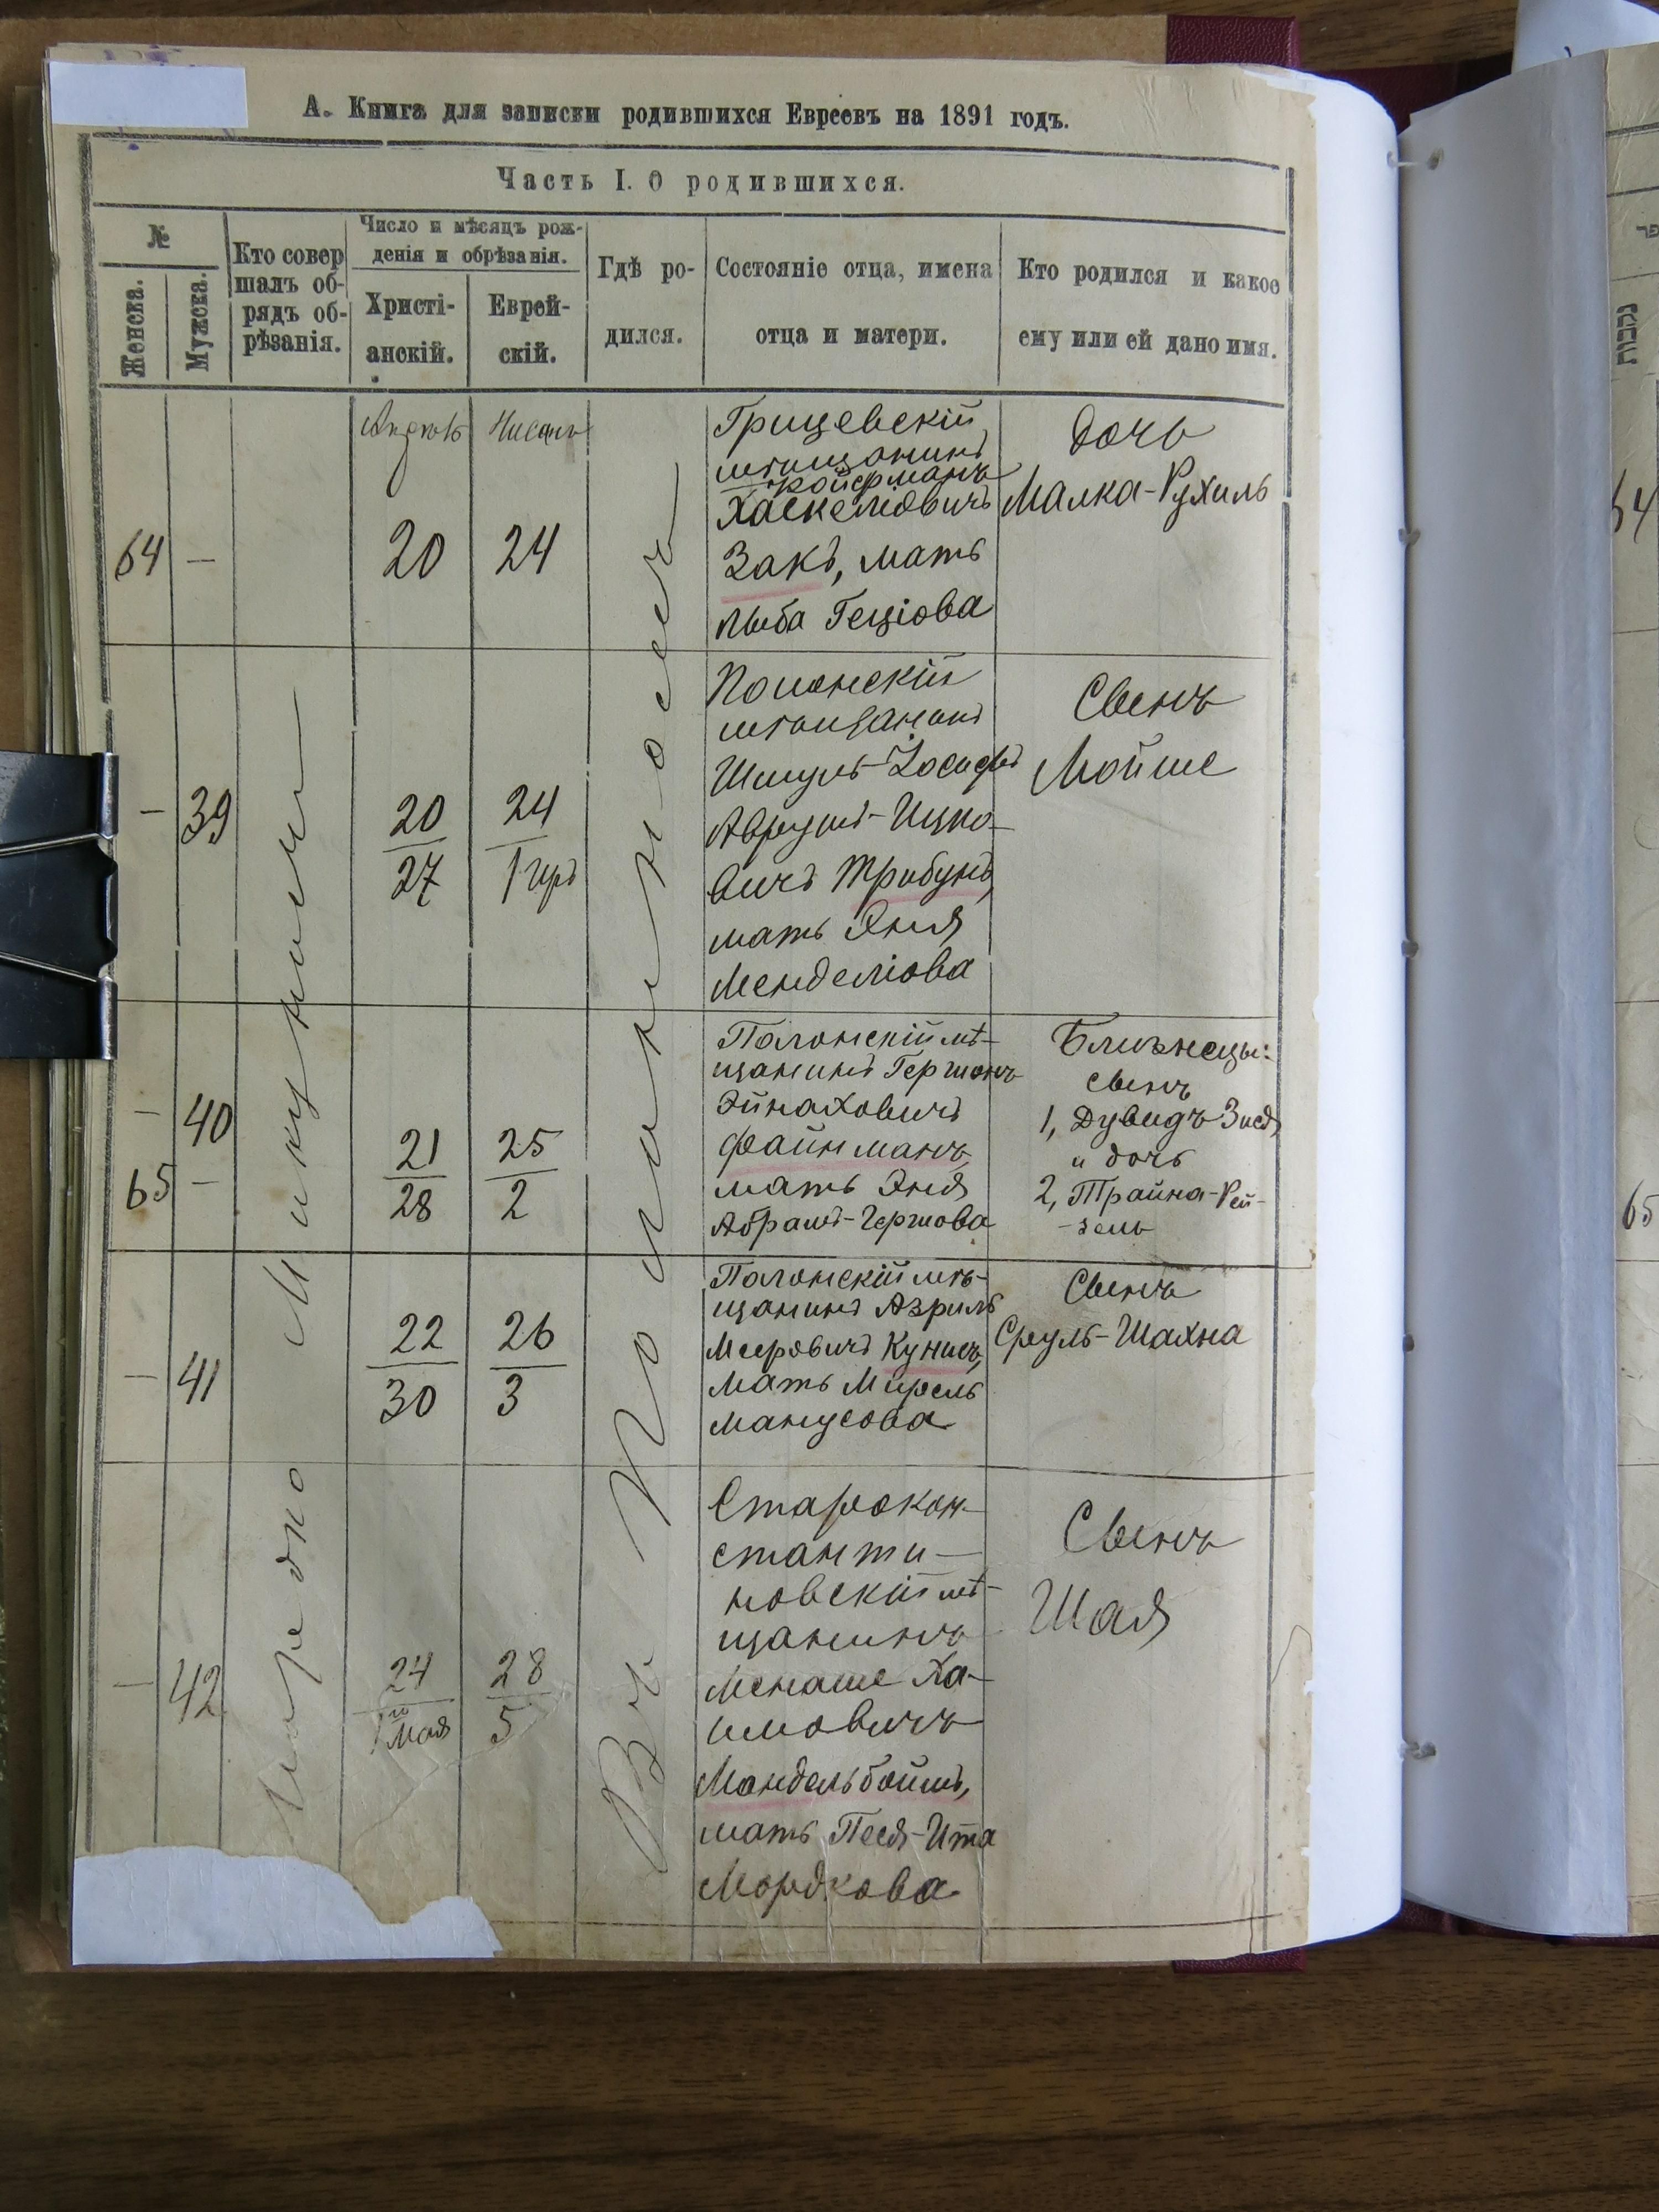 А. Книга для записки родившихся Евреевъ на 1891 годъ.
Часть I. О родившихся.
№
Женска.
Мужска.
Кто совер
шалъ об-
рядъ об-
рѣзанія.
Число и мѣсяцъ рож-
денія и обрѣзанія.
Христі-
анскій.
Еврей-
скій.
Гдѣ ро-
дился.
Состояніе отца, имена
отца и матери.
Кто родился и какое
ему или ей дано имя.
Мордко Микунисъ
Въ Полонномъ
64
—
Апрѣль
20
Нисонъ
24
Грицевскій
мѣщанинъ
Хаскелювичъ
Закъ, мать
Геціова
Дочь
Малка-Рухиль
—
39
20
27
24
1 Іиръ
Полонскій
мѣщанинъ
Шмуль-Іосифъ
Аврумъ-Ицко-
вичъ Трибунъ,
мать Эня
Менделіова
Сынъ
Мойше
—
40
65
—
21
28
25
2
Полонскій мѣ-
щанинъ Гершонъ
Эйнаховичъ
Файнманъ,
мать Эня
Абрамъ-Гершова
Близнецы:
сынъ
1, Дувидъ-Зися,
и дочь
2, Трайна-Рей-
-зель
—
41
22
30
26
3
Полонскій мѣ-
щанинъ Азриль
Мееровичъ Кунисъ,
мать Мирель
Манусова
Сынъ
Сруль-Шахна
—
42
24
1го Мая
28
5
Старокон-
станти-
новскій мѣ-
щанинъ
Менаше Ха-
имовичъ
Мандельбоймъ,
мать Песя-Ита
Мордкова
Сынъ
Шая
נקבות
64
65